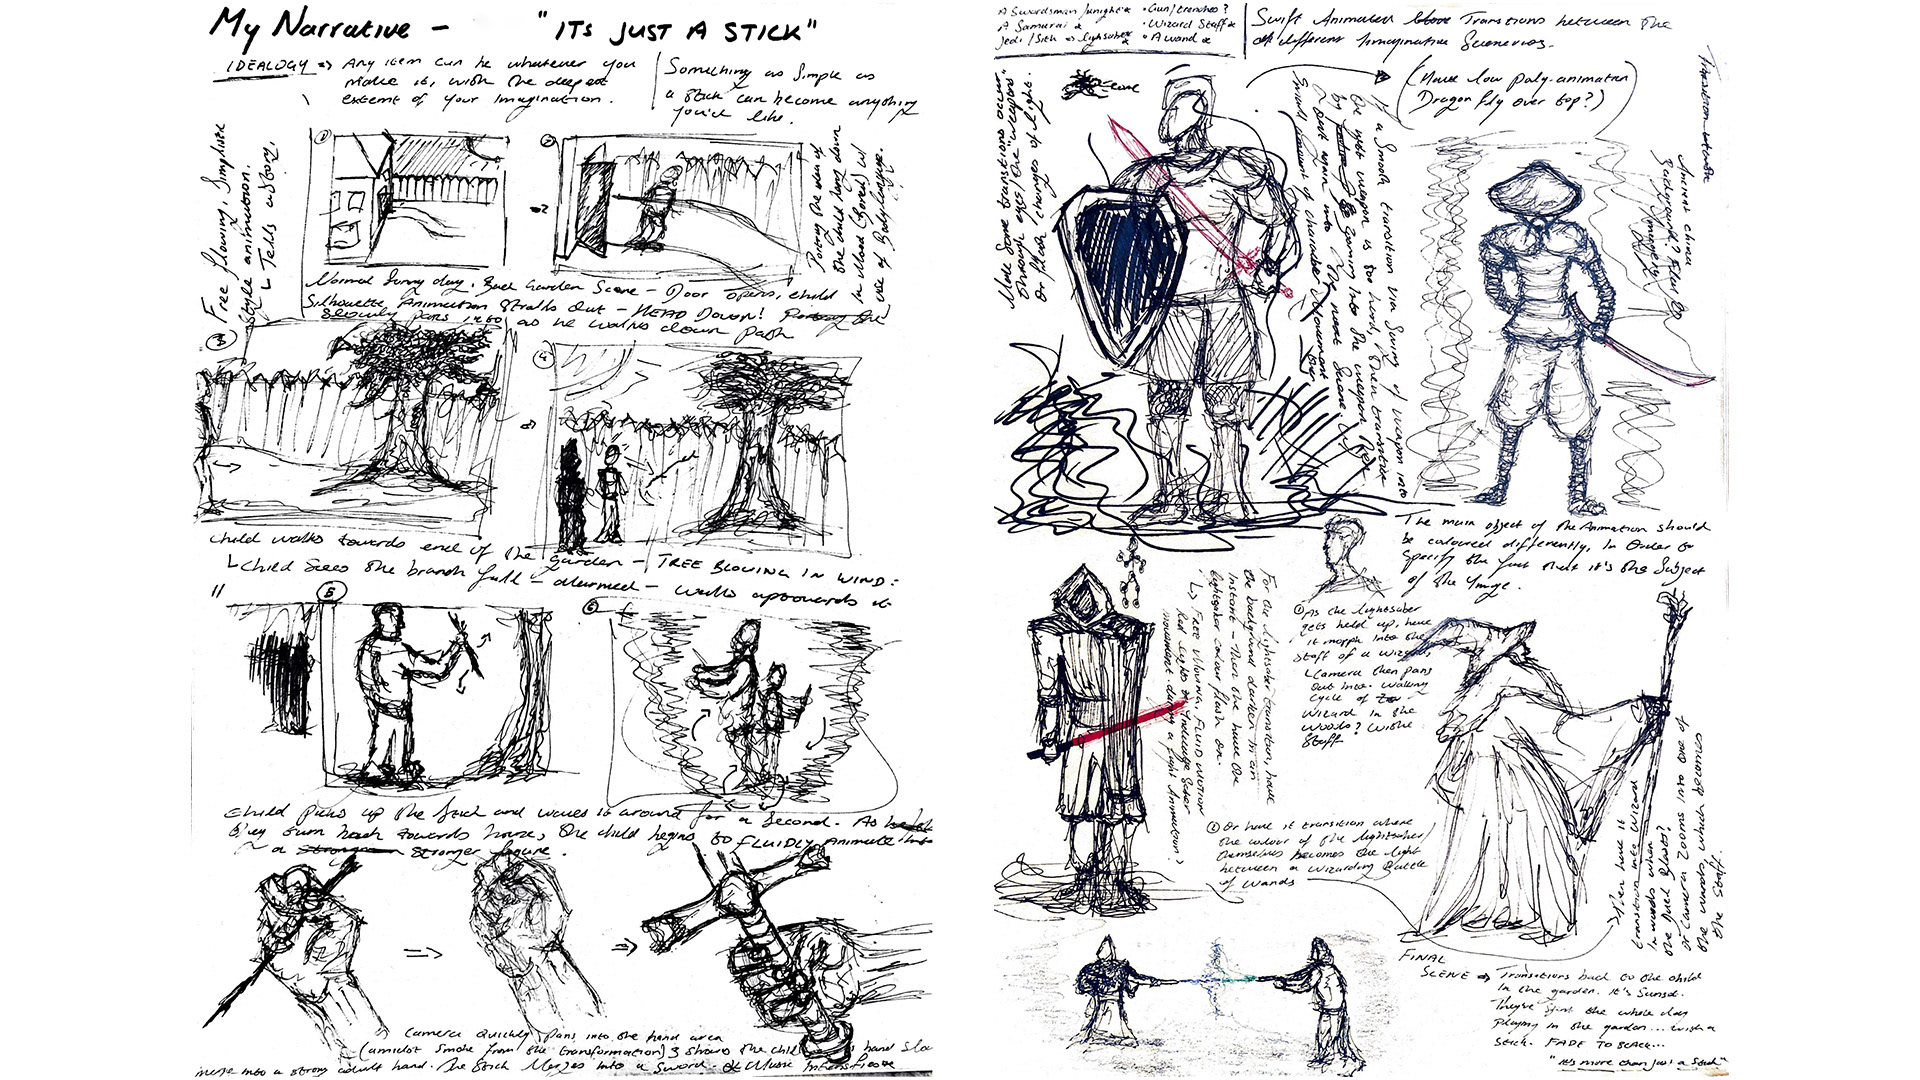 My Narrative - "ITS JUST A STICK"
IDEALOGY => Any item can be whatever you
make it, with the deepest
extent of your imagination.
Something as simple as
a stick can become anything
you'd like.
Free flowing, simplistic
style animation.
↳ Tells a story.
1
2
Portray the idea of
the child being down
in mood (Bored) w/
use of Body language.
Normal Sunny day. Back Garden Scene - Door opens, child
Silhouette, Animation Strolls out - HEAD DOWN!
slowly pans into as he walks down path
3
4
child walks towards end of the garden - TREE BLOWING IN WIND:
↳ Child sees the branch fall - alarmed - walks upwards it
5
6
child picks up the stick and waves it around for a second. As
they turn back towards house, the child begins to FLUIDLY Animate into
a stronger figure.
Camera Quickly pans into the hand area
(amidst smoke from the transformation) & shows the child hand
merge into a strong adult hand. The stick Merges into a Sword. Music Intensifies.
A Swordsman/knight *
A Samurai *
Jedi/Sith => lightsaber *
• Gun/trenches?
• Wizard Staff *
• A wand *
Swift Animated Transitions between the
different Imaginative Sceneries.
(Have low poly-animation
Dragon fly over top?)
Have some transitions occur
through eyes/the "weapons"
or flash changes of light.
cone
Small amount of character movement
If a smooth transition via swing of weapon into
the next weapon is too hard, then transition
by zooming into the weapon then
pan again into the next scene
The main object of the Animation should
be coloured differently, in order to
specify the fact that it's the subject
of the image.
For the lightsaber transition, have
the background darken in an
instant - then have the
lightsaber colour flash on.
↳ Face Moving, FLUID MOTION
movement during a fight Animation?
1 As the lightsaber
gets held up, have
it morph into the
staff of a wizard
↳ Camera then pans
out into walking
cycle of
wizard in the
woods? with
staff
2 Or have it transition where
the colour of the lightsaber/
themselves becomes the light
between a wizarding Battle
of Wands
Then have it
transition into wizard
wands when
the duel blasts?
or camera zooms into one of
the wands, which becomes
the staff.
FINAL
SCENE => Transitions back to the child
in the garden. It's Sunset.
They've spent the whole day
playing in the garden... with a
stick. FADE TO BLACK...
"It's more than just a stick"